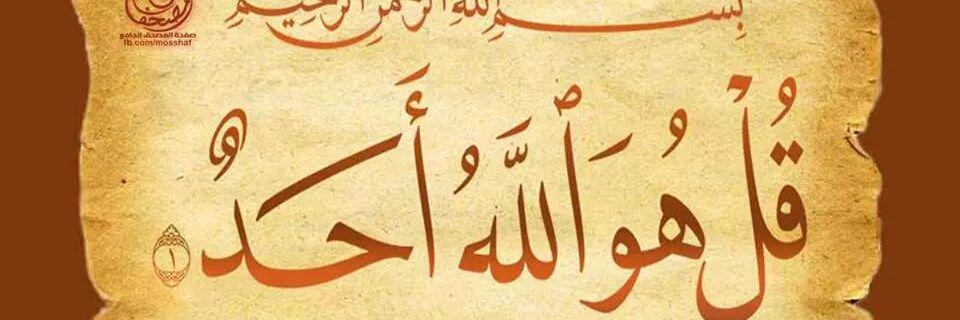 بِسْمِ اللَّهِ الرَّحْمَٰنِ الرَّحِيمِ
صفحة المصحف الجامع
fb.com/mosshaf
قُلْ هُوَ ٱللَّهُ أَحَدٌ ١